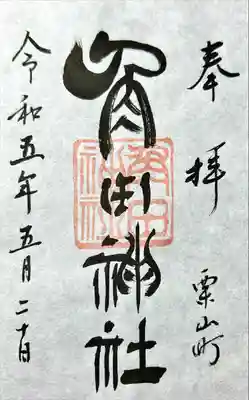 奉拝　栗山町
角田神社
令和五年五月二十日